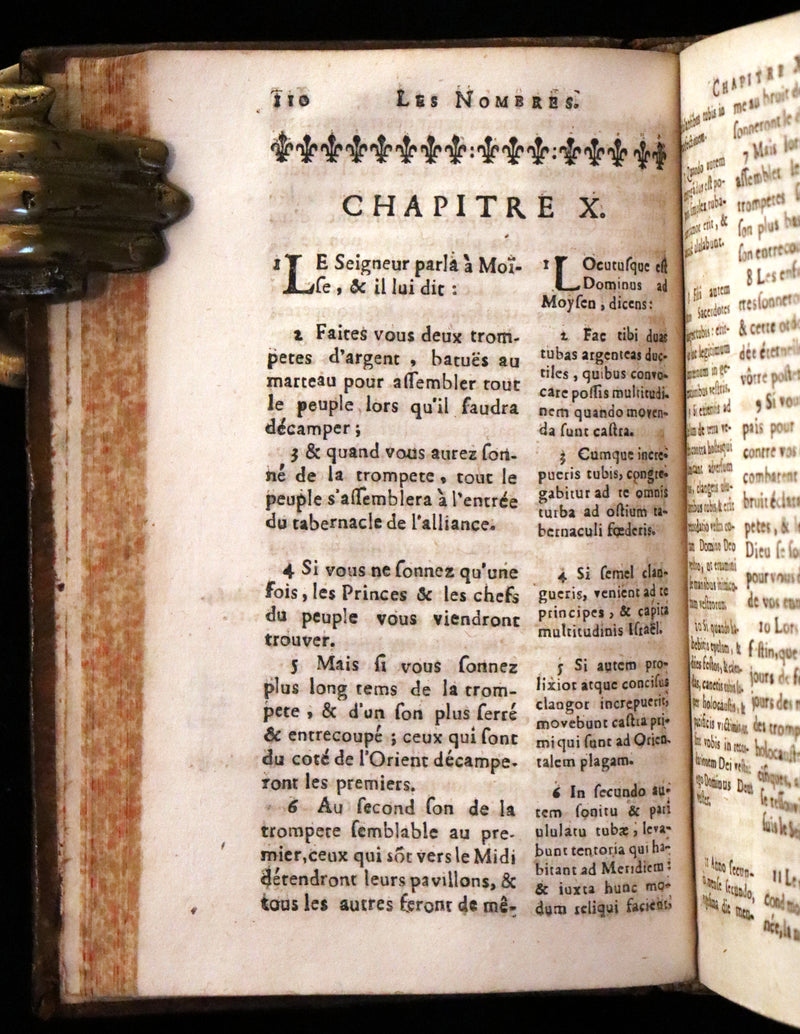 110 LES NOMBRES.
CHAPITRE X.
1 LE Seigneur parla à Moï-
ſe, & il lui dit :
2 Faites vous deux trom-
petes d'argent, batuës au
marteau pour aſſembler tout
le peuple lors qu'il faudra
décamper;
3 & quand vous aurez ſon-
né de la trompete, tout le
peuple s'aſſemblera à l'entrée
du tabernacle de l'alliance.
4 Si vous ne ſonnez qu'une
fois, les Princes & les chefs
du peuple vous viendront
trouver.
5 Mais ſi vous ſonnez
plus long tems de la trom-
pete, & d'un ſon plus ſerré
& entrecoupé; ceux qui ſont
du coté de l'Orient décampe-
ront les premiers.
6 Au ſecond ſon de la
trompete ſemblable au pre-
mier, ceux qui sõt vers le Midi
détendront leurs pavillons, &
tous les autres feront de mê-
1 LOcutuſque eſt
Dominus ad
Moyſen, dicens:
2 Fac tibi duas
tubas argenteas duc-
tiles, quibus convo-
care poſſis multitudi-
nem quando moven-
da ſunt caſtra.
3 Cumque incre-
pueris tubis, congre-
gabitur ad te omnis
turba ad oſtium ta-
bernaculi fœderis.
4 Si ſemel clan-
gueris, venient ad te
principes, & capita
multitudinis Iſraël.
5 Si autem pro-
lixior atque conciſus
clangor increpuerit,
movebunt caſtra pri-
mi qui ſunt ad Orien-
talem plagam.
6 In ſecundo au-
tem ſonitu & pari
ululatu tubæ, leva-
bunt tentoria qui ha-
bitant ad Meridiem:
& iuxta hunc mo-
dum reliqui facient
CHAPITRE X
me au bruit
ſonneront le
7 Mais lor
aſſembler le
trompetes
ſon plus
ſon entreco
8 Les enf
& cette
vôtre poſt
9 Si vou
pais pour
contre vos
combatent
petes, &
Dieu ſe ſo
pour vous
de vos
10 Lor
jours de
jours des
des trompe
11 Le